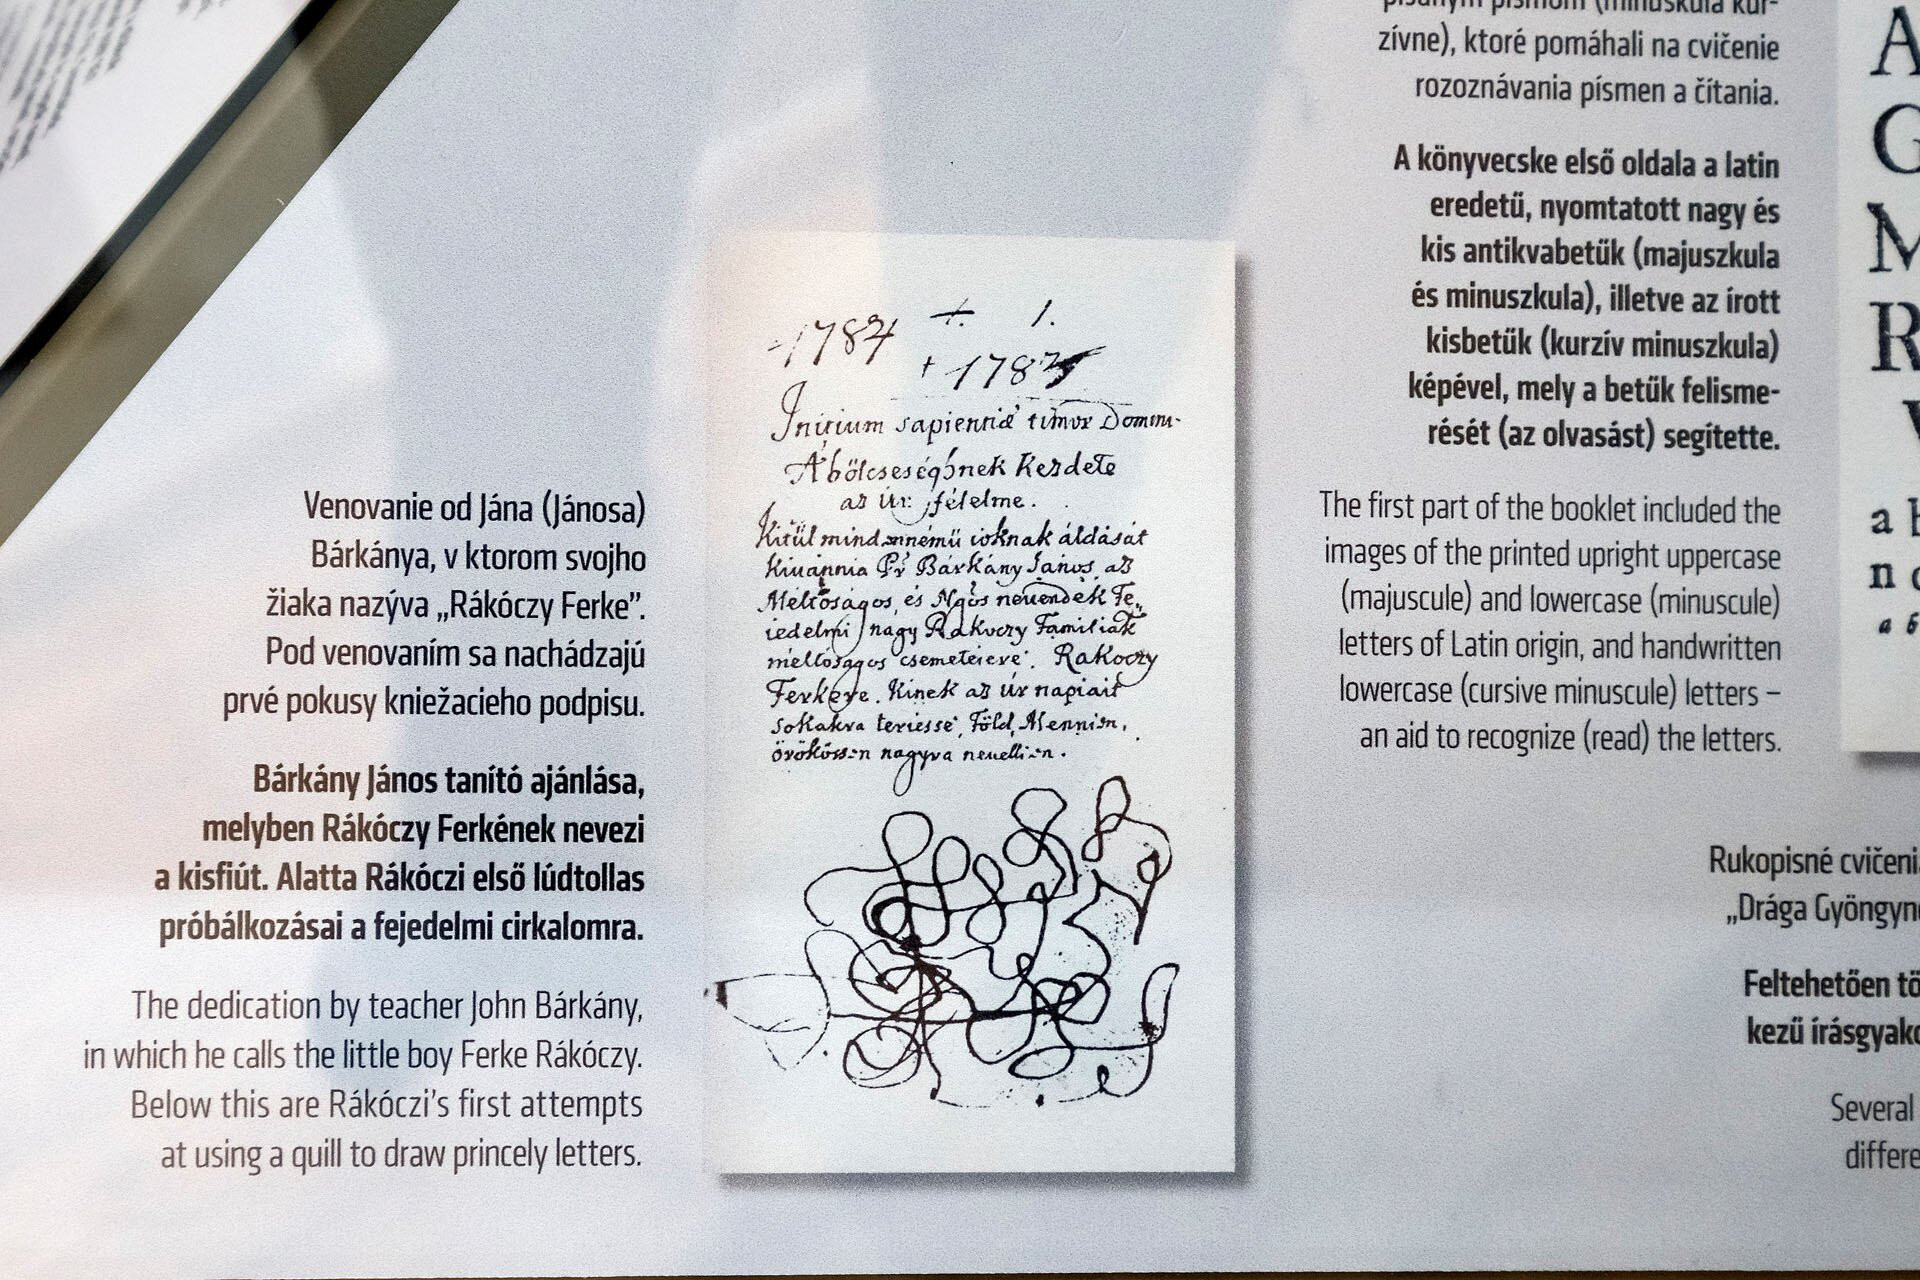 Venovanie od Jána (Jánosa)
Bárkánya, v ktorom svojho
žiaka nazýva „Rákóczy Ferke”.
Pod venovaním sa nachádzajú
prvé pokusy kniežacieho podpisu.
Bárkány János tanító ajánlása,
melyben Rákóczy Ferkének nevezi
a kisfiút. Alatta Rákóczi első lúdtollas
próbálkozásai a fejedelmi cirkalomra.
The dedication by teacher John Bárkány,
in which he calls the little boy Ferke Rákóczy.
Below this are Rákóczi’s first attempts
at using a quill to draw princely letters.
1.
Initium sapientiæ timor Domini.
A bölcseségnek kezdete
az Úr félelme.
Kitül mindennémü joknak áldását
kiuánnia Bárkány János, az
Méltóságos, és Ngos neuendék Fe„
jedelmi nagy Rakoczy Familiák
méltóságos csemetejere, Rakoczy
Ferkére. Kinek az Úr napiait
sokakra teriesse, Föld, Mennien,
örökössen nagyra neuellien.
zívne), ktoré pomáhali na cvičenie
rozoznávania písmen a čítania.
A könyvecske első oldala a latin
eredetű, nyomtatott nagy és
kis antikvabetűk (majuszkula
és minuszkula), illetve az írott
kisbetűk (kurzív minuszkula)
képével, mely a betűk felisme-
rését (az olvasást) segítette.
The first part of the booklet included the
images of the printed upright uppercase
(majuscule) and lowercase (minuscule)
letters of Latin origin, and handwritten
lowercase (cursive minuscule) letters –
an aid to recognize (read) the letters.
Rukopisné
„Drága
Feltehetően
kezű
Several
A
G
M
R
a
n
a